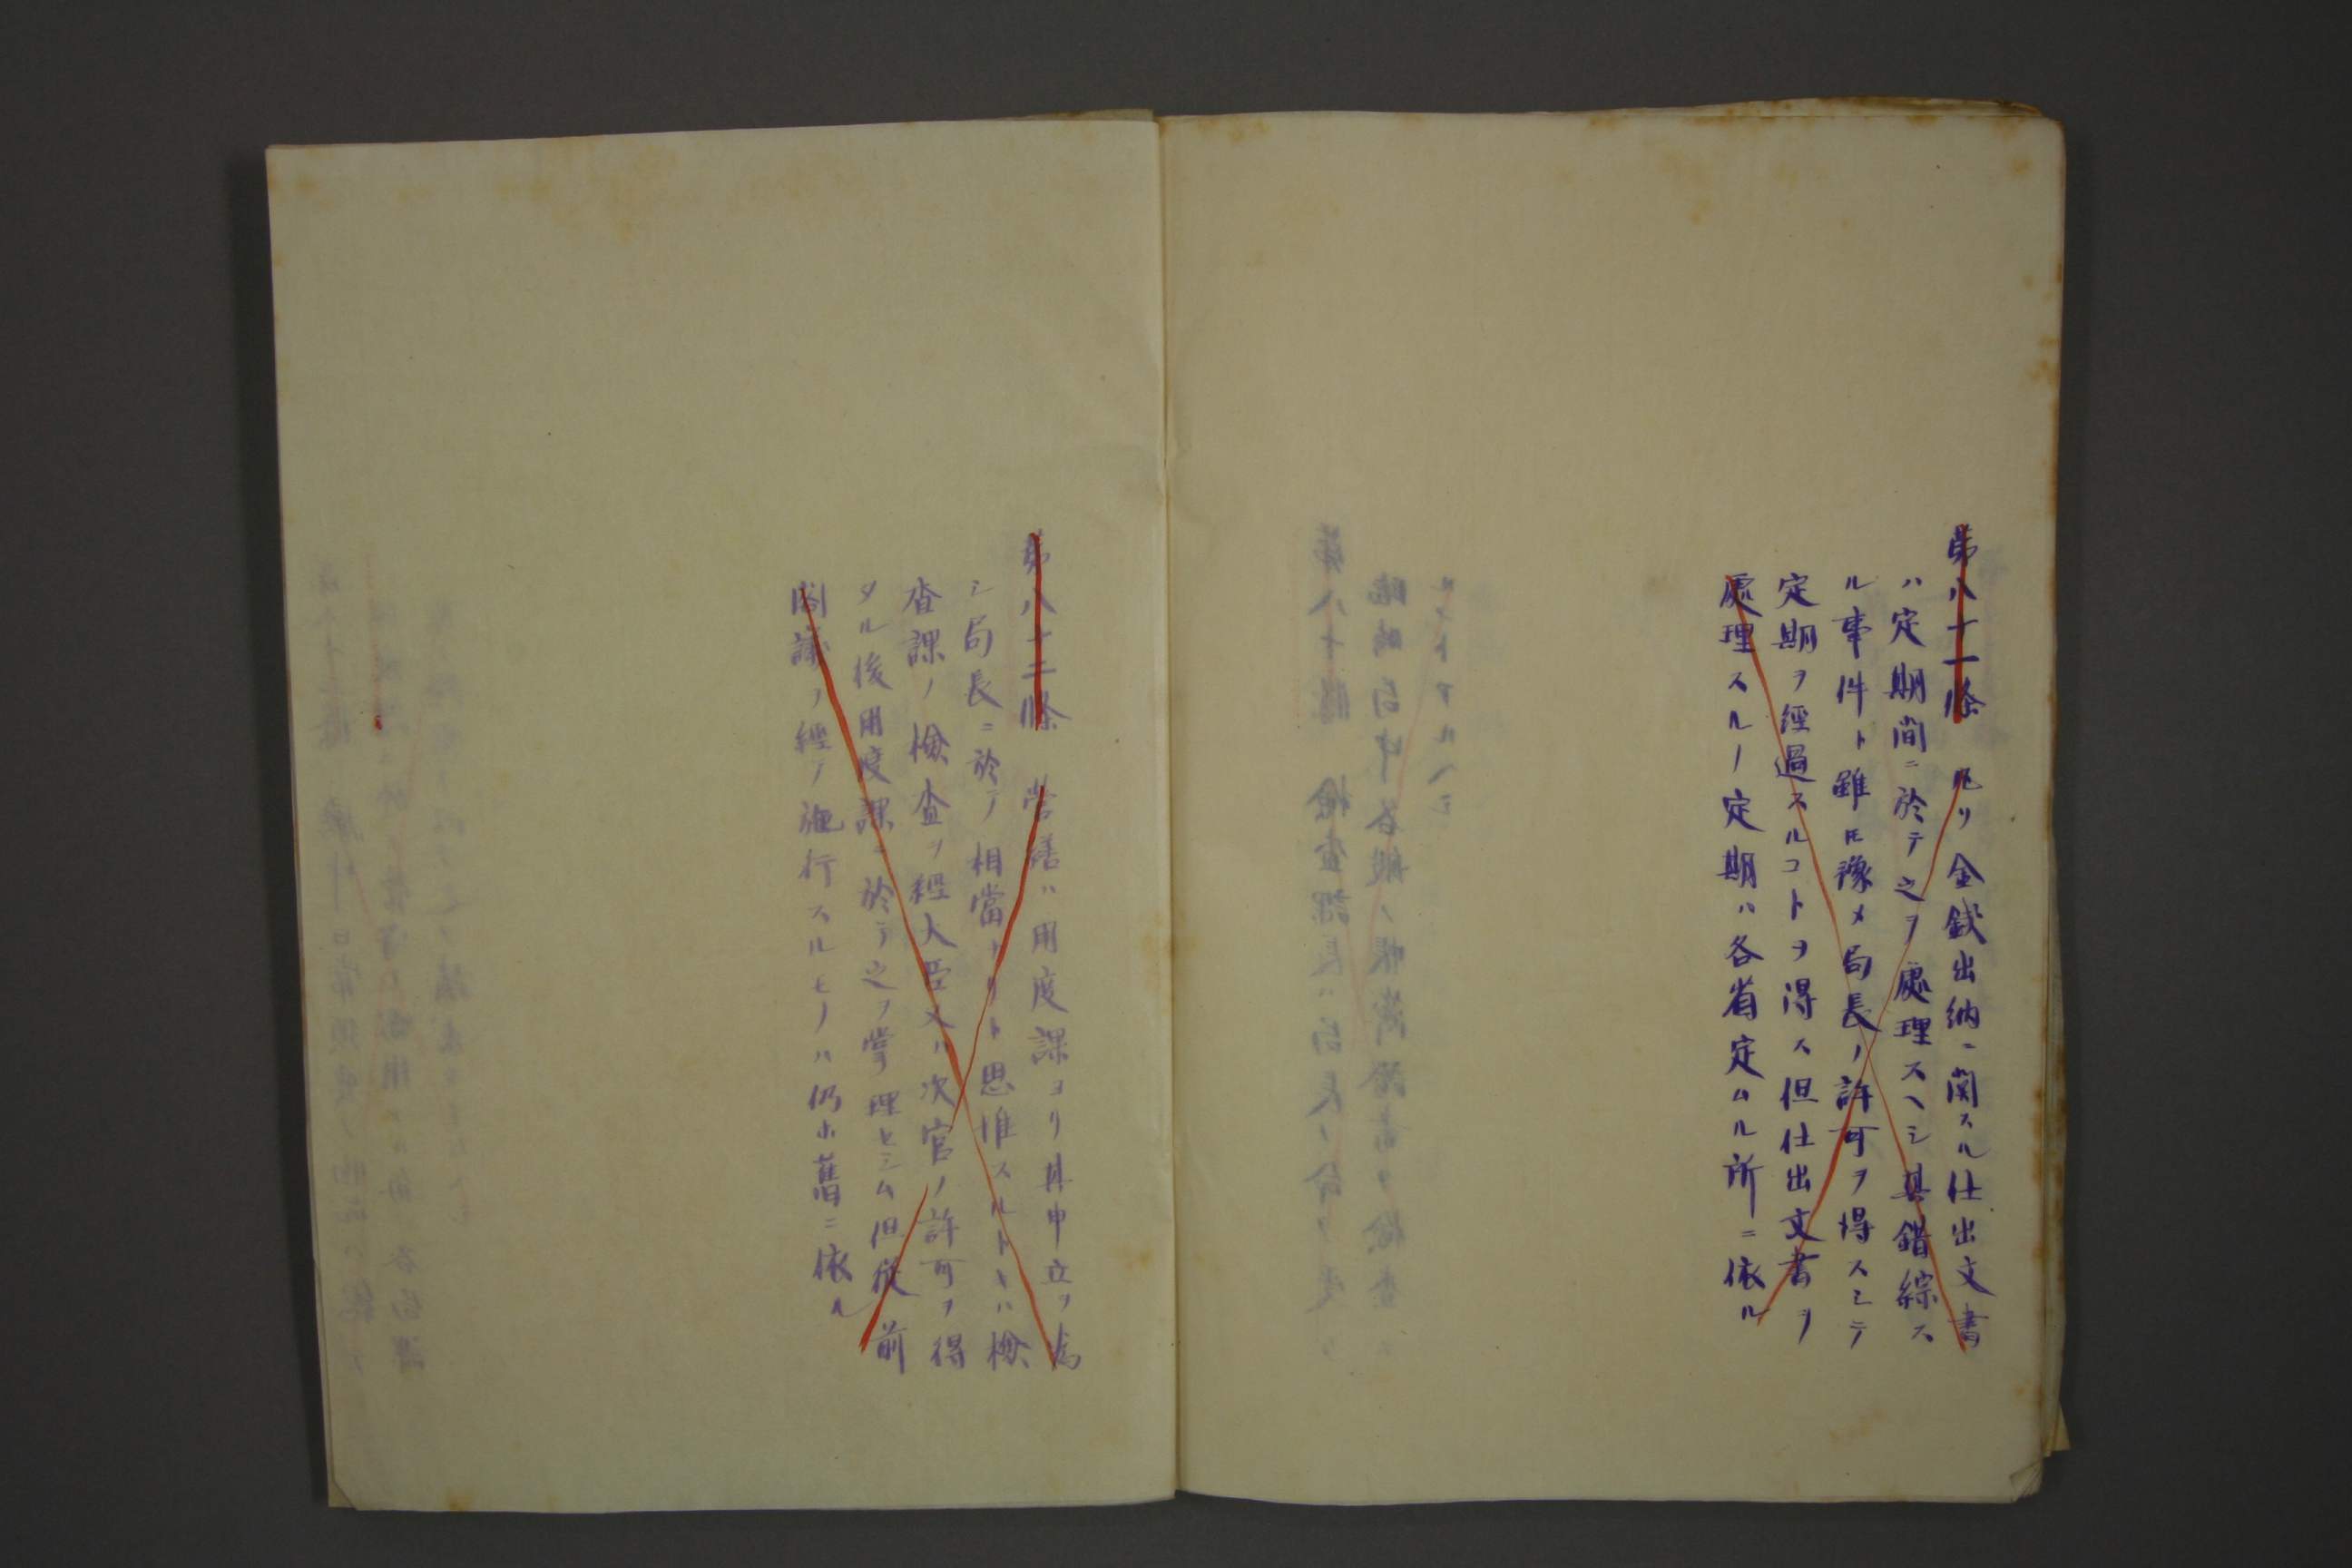 第八十一條 凡リ金錢出納ニ関スル仕出文書
ハ定期間ニ於テ之ヲ處理スヘシ其錯綜ス
ル事件ト雖𪜈豫メ局長ノ許可ヲ得スシテ
定期ヲ經過スルコトヲ得ス但仕出文書ヲ
處理スルノ定期ハ各省定ムル所ニ依ル
第八十二條 営繕ハ用度課ヨリ其申立ヲ為
シ局長ニ於テ相當ナリト思惟スルトキハ檢
查課ノ檢查ヲ經大臣又ハ次官ノ許可ヲ得
タル後用度課ニ於テ之ヲ掌理セシム但従前
閣議ヲ經テ施行スルモノハ仍ホ舊ニ依ル